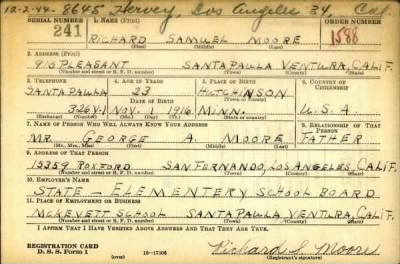 12-2-44- 8645 Hervey, Los Angeles 34, Cal.
SERIAL NUMBER 1. NAME (Print) ORDER NUMBER
241 RICHARD SAMUEL MOORE 1588
(First) (Middle) (Last)
2. ADDRESS (Print)
910 PLEASANT SANTA PAULA VENTURA, CALIF.
(Number and street or R. F. D. number) (Town) (County) (State)
3. TELEPHONE 4. AGE IN YEARS 5. PLACE OF BIRTH 6. COUNTRY OF CITIZENSHIP
SANTA PAULA 23 HUTCHINSON
DATE OF BIRTH (Town or county)
326Y-1 NOV. 1 1916 MINN. U.S.A.
(Exchange) (Number) (Mo.) (Day) (Yr.) (State or country)
7. NAME OF PERSON WHO WILL ALWAYS KNOW YOUR ADDRESS 8. RELATIONSHIP OF THAT PERSON
MR. GEORGE A. MOORE FATHER
(Mr., Mrs., Miss) (First) (Middle) (Last)
9. ADDRESS OF THAT PERSON
15359 ROXFORD SAN FERNANDO, LOS ANGELES, CALIF.
(Number and street or R. F. D. number) (Town) (County) (State)
10. EMPLOYER'S NAME
STATE ELEMENTERY SCHOOL BOARD
11. PLACE OF EMPLOYMENT OR BUSINESS
MCKEVETT SCHOOL SANTA PAULA VENTURA, CALIF.
(Number and street or R. F. D. number) (Town) (County) (State)
I AFFIRM THAT I HAVE VERIFIED ABOVE ANSWERS AND THAT THEY ARE TRUE.
REGISTRATION CARD
D. S. S. Form 1 16-17105 Richard S. Moore
(Registrant's signature)